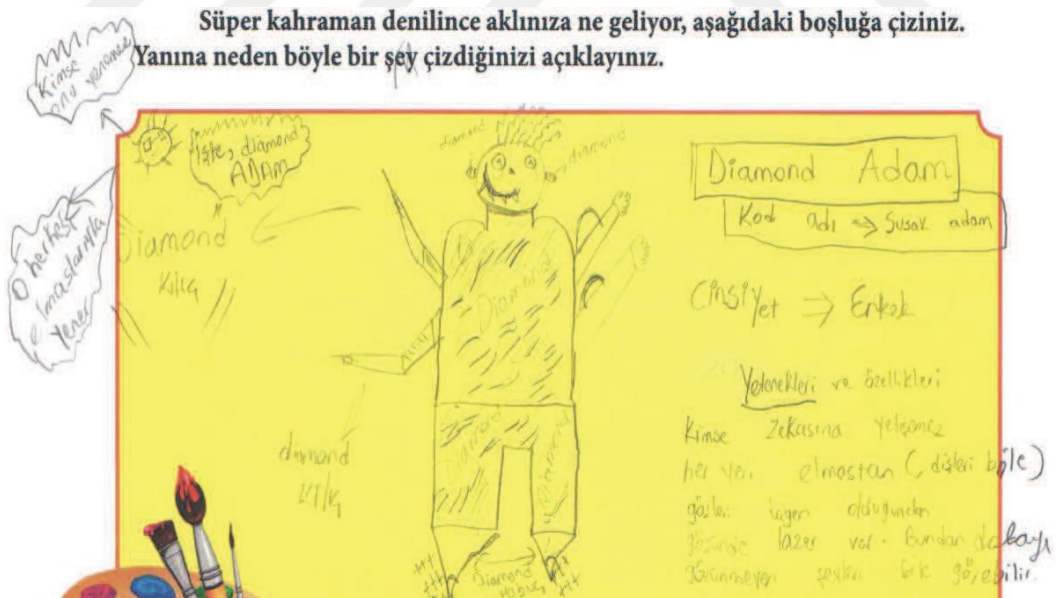 Süper kahraman denilince aklınıza ne geliyor, aşağıdaki boşluğa çiziniz.
Yanına neden böyle bir şey çizdiğinizi açıklayınız.
Kimse
onu yenemez
İşte, diamond
ADAM
diamond
diamond
O herkesi
elmaslarıyla
yener
Diamond
Kılıç
diamond
Kılıç
Diamond
Diamond
Diamond
Diamond
Diamond Adam
Kod adı => Susak adam
Cinsiyet => Erkek
Yetenekleri ve özellikleri
Kimse Zekasına yetişemez
her yeri elmastan (, dişleri bile)
gözleri olduğundan
gözünde lazer var. Bundan dolayı
görünmeyen şeyleri bile görebilir.